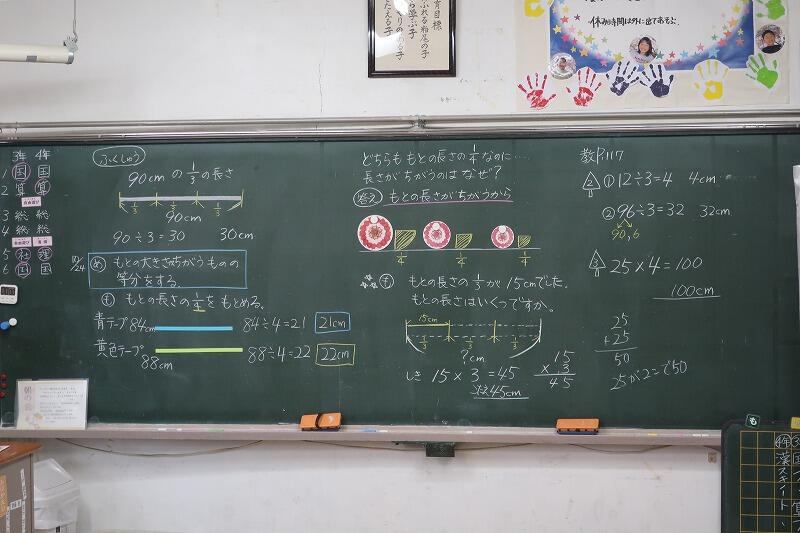 育目標
ふれる粕尾の子
ら学ぶ子
やりのある子
きたえる子
休み時間は外に出てあそぶ。
3年 4年
1 国 国
2 算 算
3 総 総
4 総 総
5 社 理
6 国 国
10/24
ふくしゅう
90cmの1/3の長さ
1/3 1/3 1/3
90cm
90÷3=30 30cm
め もとの大きさがちがうものの
等分をする。
も もとの長さの1/4をもとめる。
青テープ84cm 84÷4=21 21cm
黄色テープ 88cm 88÷4=22 22cm
どちらももとの長さの1/4なのに…
長さがちがうのはなぜ?
答え もとの長さがちがうから
1/4 1/4 1/4
も もとの長さの1/3が15cmでした。
もとの長さはいくつですか。
15cm
1/3 1/3 1/3
?cm
しき 15×3=45
答え45cm
15
×3
45
教P.117
2 ① 12÷3=4 4cm
② 96÷3=32 32cm
90,6
3 25×4=100
100cm
25
+25
50
25が2こで50
も
4年 3年
漢スキイト